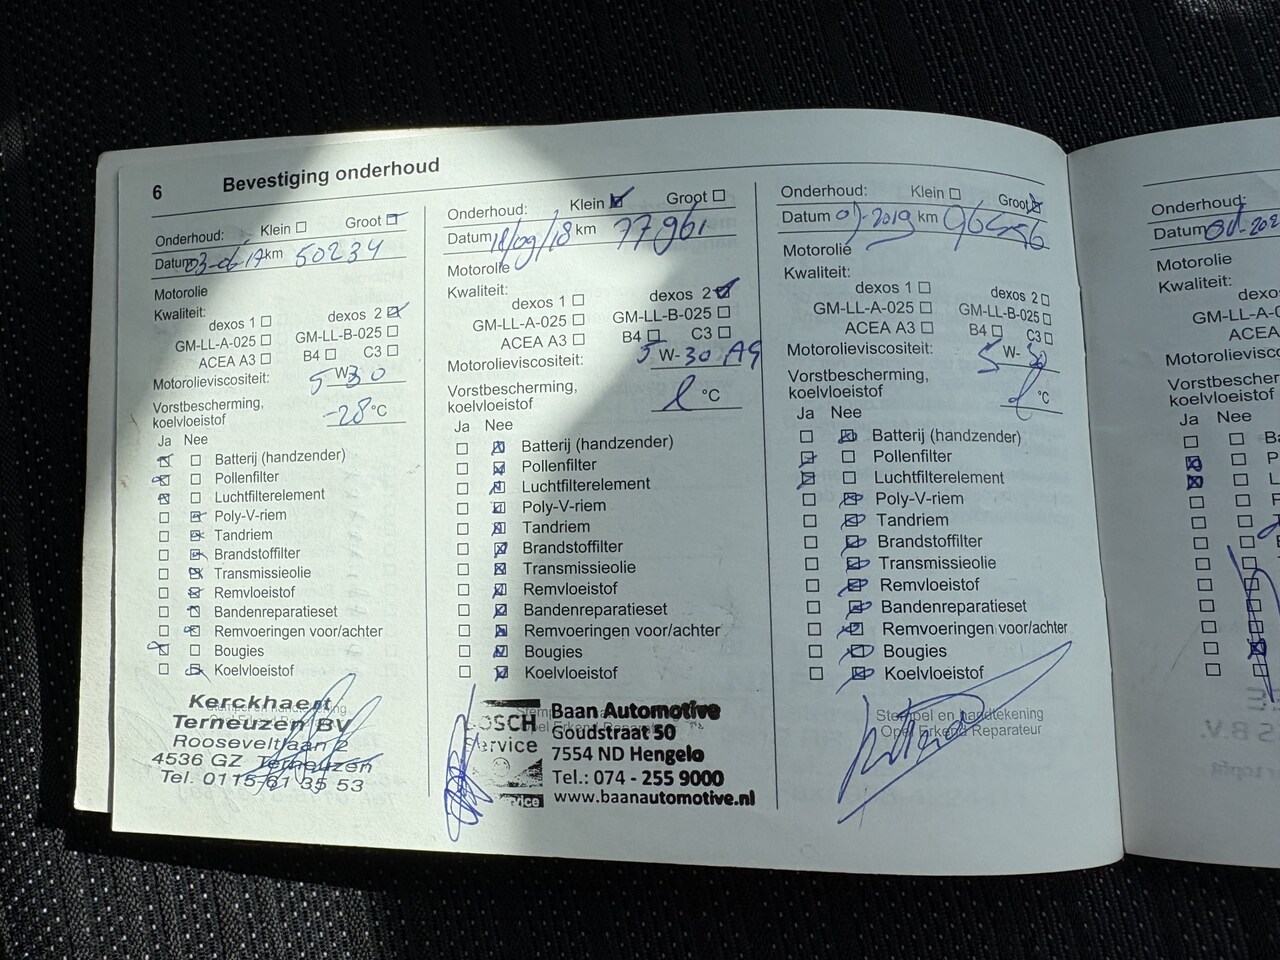 6 Bevestiging onderhoud
Onderhoud: Klein Groot
Datum 03-06-17 km 50234
Motorolie
Kwaliteit:
dexos 1 dexos 2
GM-LL-A-025 GM-LL-B-025
ACEA A3 B4 C3
Motorolieviscositeit: 5 W-30
Vorstbescherming,
koelvloeistof -28 °C
Ja Nee
Batterij (handzender)
Pollenfilter
Luchtfilterelement
Poly-V-riem
Tandriem
Brandstoffilter
Transmissieolie
Remvloeistof
Bandenreparatieset
Remvoeringen voor/achter
Bougies
Koelvloeistof
Kerckhaert
Terneuzen BV
Rooseveltlaan 2
4536 GZ Terneuzen
Tel. 0115-61 35 53
Onderhoud: Klein Groot
Datum 18/09/18 km 77961
Motorolie
Kwaliteit:
dexos 1 dexos 2
GM-LL-A-025 GM-LL-B-025
ACEA A3 B4 C3
Motorolieviscositeit: 5 W-30
Vorstbescherming,
koelvloeistof °C
Ja Nee
Batterij (handzender)
Pollenfilter
Luchtfilterelement
Poly-V-riem
Tandriem
Brandstoffilter
Transmissieolie
Remvloeistof
Bandenreparatieset
Remvoeringen voor/achter
Bougies
Koelvloeistof
BOSCH
Service
Baan Automotive
Goudstraat 50
7554 ND Hengelo
Tel.: 074 - 255 9000
www.baanautomotive.nl
Onderhoud: Klein Groot
Datum km
Motorolie
Kwaliteit:
dexos 1 dexos 2
GM-LL-A-025 GM-LL-B-025
ACEA A3 B4 C3
Motorolieviscositeit: 5 W-30
Vorstbescherming,
koelvloeistof °C
Ja Nee
Batterij (handzender)
Pollenfilter
Luchtfilterelement
Poly-V-riem
Tandriem
Brandstoffilter
Transmissieolie
Remvloeistof
Bandenreparatieset
Remvoeringen voor/achter
Bougies
Koelvloeistof
Stempel en handtekening
Opel Erkend Reparateur
Onderhoud:
Datum
Motorolie
Kwaliteit:
GM-LL-A
ACEA
Motorolievisc
Vorstbescher
koelvloeistof
Ja Nee